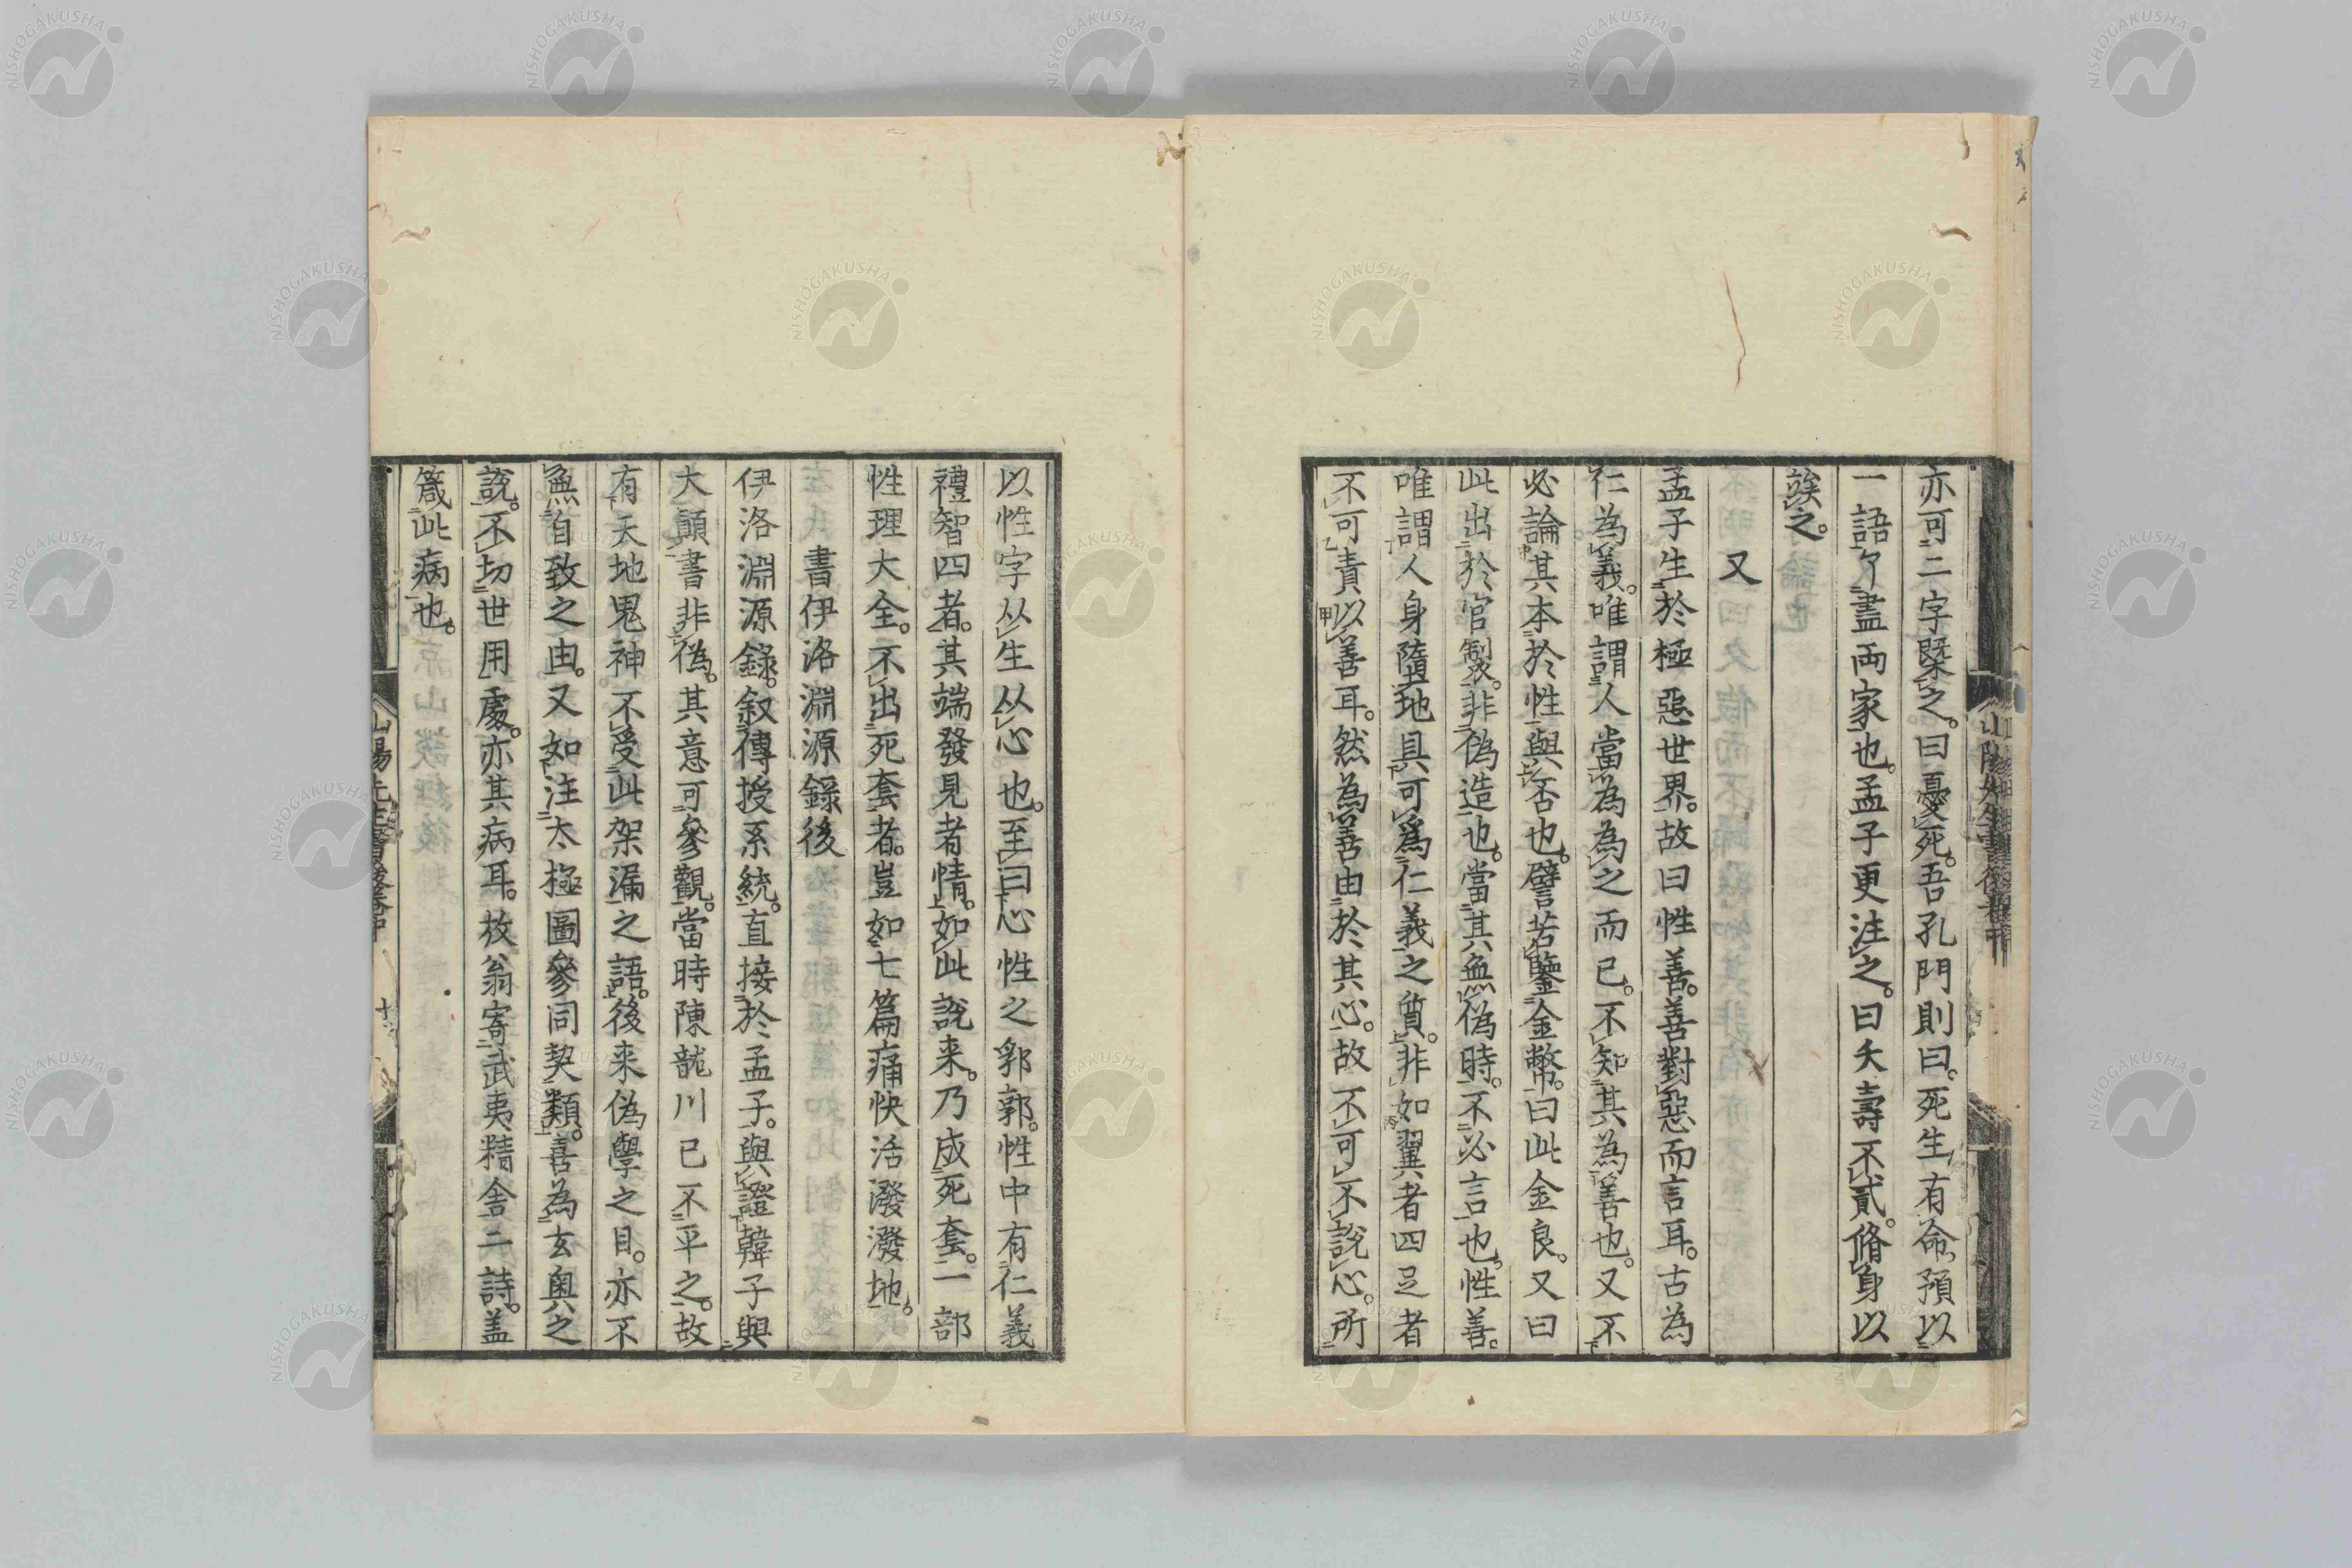 亦可二字槩之。曰憂死。吾孔門則曰。死生有命。預以
一語了盡両家也。孟子更注之。曰夭壽不貳。脩身以
竢之。
又
孟子生於極惡世界。故曰性善。善對惡而言耳。古為
仁為義。唯謂人當為為之而已。不知其為善也。又不
必論其本於性與否也。譬若鑒金幣。曰此金良。又曰
此出於官製。非偽造也。當其無偽時。不必言也。性善。
唯謂人身墮地具可爲仁義之質。非如翼者四足者
不可責以善耳。然為善由於其心。故不可不說心。所
以性字从生从心也。至曰心性之郛郭。性中有仁義
禮智四者。其端發見者情。如此說来。乃成死套。一部
性理大全。不出死套者。豈如七篇痛快活潑潑地。
書伊洛淵源錄後
伊洛淵源錄。叙傳授系統。直接於孟子。與證韓子與
大顛書非偽。其意可參觀。當時陳龍川已不平之。故
有天地鬼神不受此架漏之語。後来偽學之目。亦不
無自致之由。又如注太極圖參同契類。喜為玄奥之
說。不切世用處。亦其病耳。放翁寄武夷精舎二詩。盖
箴此病也。